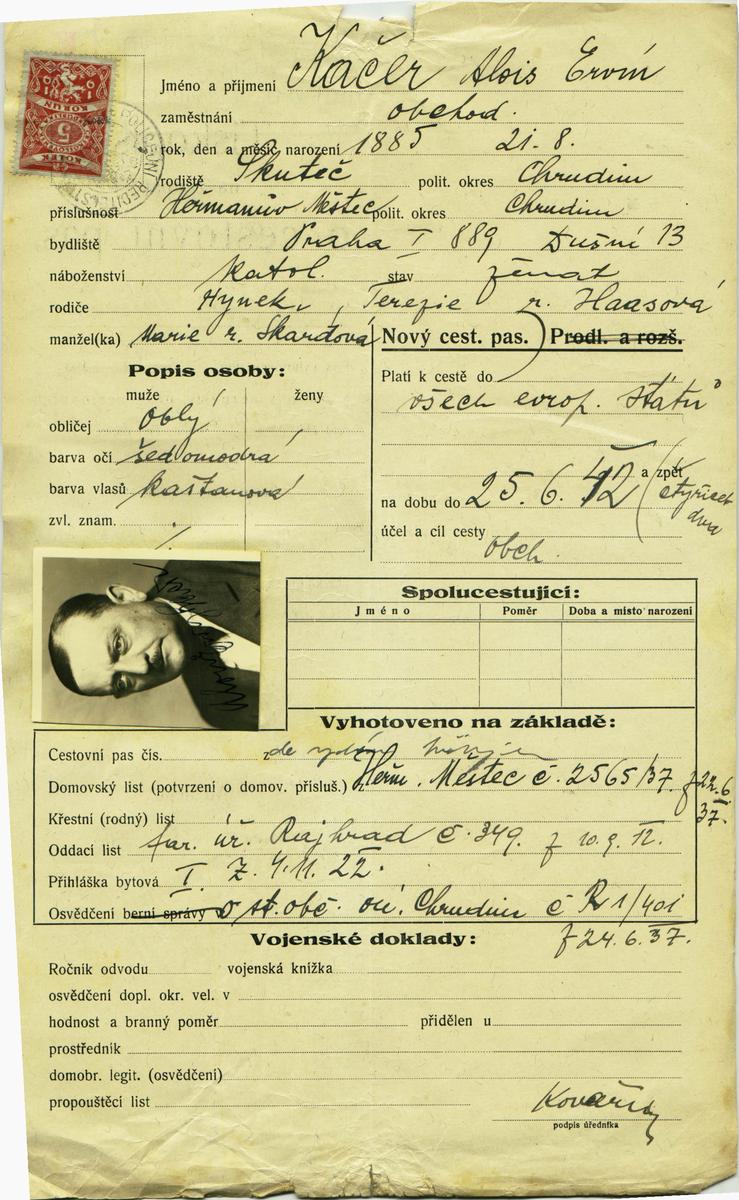 Jméno a přijmení Kačer Alois Ervín
zaměstnání obchod.
rok, den a měsíc narození 1885 21. 8.
rodiště Skuteč polit. okres Chrudim
příslušnost Heřmanův Městec polit. okres Chrudim
bydliště Praha I 889 Dušní 13
náboženství katol. stav ženat
rodiče Hynek, Terezie r. Haasová
manžel(ka) Marie r. Skardová
Nový cest. pas. Prodl. a rozš.
Popis osoby:
muže ženy
obličej oblý
barva očí šedomodrá
barva vlasů kaštanová
zvl. znam.
Platí k cestě do
všech evrop. států
a zpět
na dobu do 25. 6. 42 (čtyřicet dva
účel a cíl cesty
obch.
Spolucestující:
Jméno Poměr Doba a místo narození
Vyhotoveno na základě:
Cestovní pas čís. zde
Domovský list (potvrzení o domov. přísluš.) Heřm. Městec č. 2565/37. z 22. 6. 37.
Křestní (rodný) list
Oddací list far. úř. Rajhrad č. 349. z 10. 9. 12.
Přihláška bytová I. Z. 4. 11. 22.
Osvědčení berní správy o st. obč. oú. Chrudim č R 1/401
z 24. 6. 37.
Vojenské doklady:
Ročník odvodu vojenská knížka
osvědčení dopl. okr. vel. v
hodnost a branný poměr přidělen u
prostředník
domobr. legit. (osvědčení)
propouštěcí list
podpis úředníka
5
KORUN
KOLEK